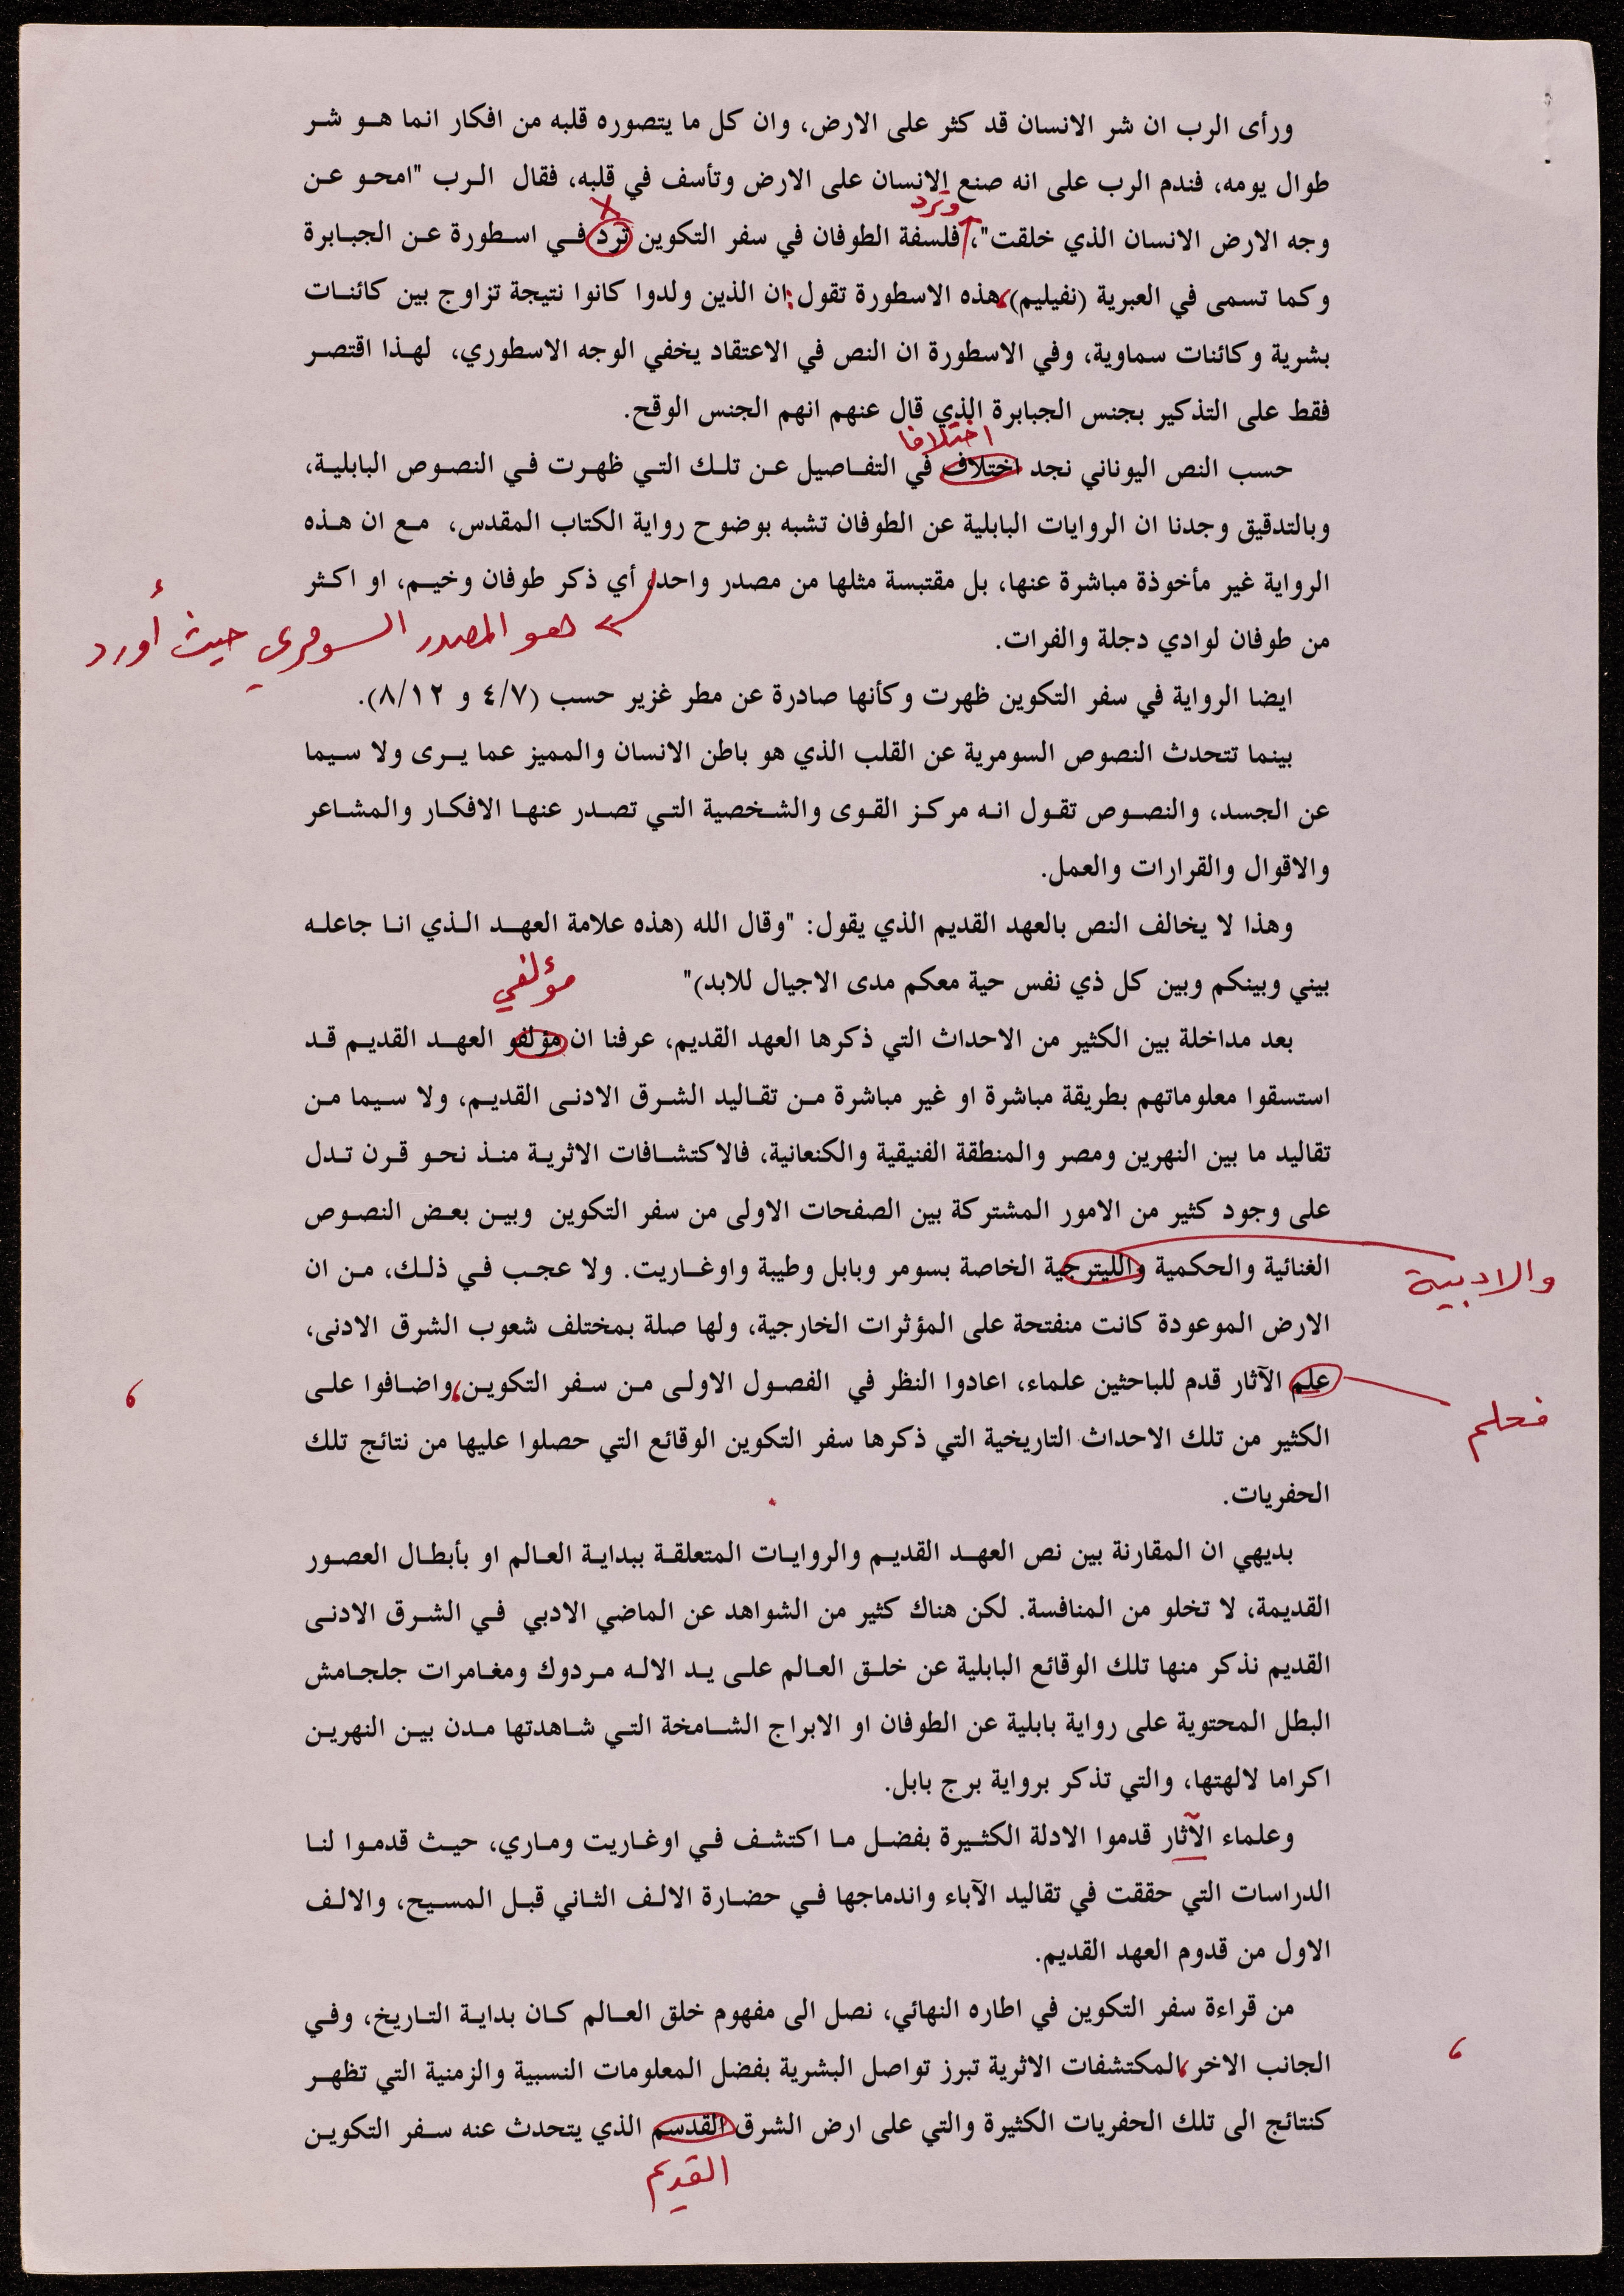 ورأى الرب ان شر الانسان قد كثر على الارض، وان كل ما يتصوره قلبه من افكار انما هو شر
طوال يومه، فندم الرب على انه صنع الانسان على الارض وتأسف في قلبه، فقال الرب "امحو عن
وترد
وجه الارض الانسان الذي خلقت"، فلسفة الطوفان في سفر التكوين ترد في اسطورة عن الجبابرة
وكما تسمى في العبرية (نفيليم)، هذه الاسطورة تقول: ان الذين ولدوا كانوا نتيجة تزاوج بين كائنات
بشرية وكائنات سماوية، وفي الاسطورة ان النص في الاعتقاد يخفي الوجه الاسطوري، لهذا اقتصر
فقط على التذكير بجنس الجبابرة الذي قال عنهم انهم الجنس الوقح.
اختلافا
حسب النص اليوناني نجد اختلاف في التفاصيل عن تلك التي ظهرت في النصوص البابلية،
وبالتدقيق وجدنا ان الروايات البابلية عن الطوفان تشبه بوضوح رواية الكتاب المقدس، مع ان هذه
الرواية غير مأخوذة مباشرة عنها، بل مقتبسة مثلها من مصدر واحد، أي ذكر طوفان وخيم، او اكثر
هو المصدر السومري حيث أورد
من طوفان لوادي دجلة والفرات.
ايضا الرواية في سفر التكوين ظهرت وكأنها صادرة عن مطر غزير حسب (٤/٧ و ٨/١٢).
بينما تتحدث النصوص السومرية عن القلب الذي هو باطن الانسان والمميز عما يرى ولا سيما
عن الجسد، والنصوص تقول انه مركز القوى والشخصية التي تصدر عنها الافكار والمشاعر
والاقوال والقرارات والعمل.
وهذا لا يخالف النص بالعهد القديم الذي يقول: "وقال الله (هذه علامة العهد الذي انا جاعله
بيني وبينكم وبين كل ذي نفس حية معكم مدى الاجيال للابد)"
مؤلفي
بعد مداخلة بين الكثير من الاحداث التي ذكرها العهد القديم، عرفنا ان مؤلفو العهد القديم قد
استسقوا معلوماتهم بطريقة مباشرة او غير مباشرة من تقاليد الشرق الادنى القديم، ولا سيما من
تقاليد ما بين النهرين ومصر والمنطقة الفنيقية والكنعانية، فالاكتشافات الاثرية منذ نحو قرن تدل
على وجود كثير من الامور المشتركة بين الصفحات الاولى من سفر التكوين وبين بعض النصوص
الغنائية والحكمية والليترجية الخاصة بسومر وبابل وطيبة واوغاريت. ولا عجب في ذلك، من ان
والادبية
الارض الموعودة كانت منفتحة على المؤثرات الخارجية، ولها صلة بمختلف شعوب الشرق الادنى،
علم الآثار قدم للباحثين علماء، اعادوا النظر في الفصول الاولى من سفر التكوين، واضافوا على
،
فعلم
الكثير من تلك الاحداث التاريخية التي ذكرها سفر التكوين الوقائع التي حصلوا عليها من نتائج تلك
الحفريات.
بديهي ان المقارنة بين نص العهد القديم والروايات المتعلقة ببداية العالم او بأبطال العصور
القديمة، لا تخلو من المنافسة. لكن هناك كثير من الشواهد عن الماضي الادبي في الشرق الادنى
القديم نذكر منها تلك الوقائع البابلية عن خلق العالم على يد الاله مردوك ومغامرات جلجامش
البطل المحتوية على رواية بابلية عن الطوفان او الابراج الشامخة التي شاهدتها مدن بين النهرين
اكراما لالهتها، والتي تذكر برواية برج بابل.
وعلماء الآثار قدموا الادلة الكثيرة بفضل ما اكتشف في اوغاريت وماري، حيث قدموا لنا
الدراسات التي حققت في تقاليد الآباء واندماجها في حضارة الالف الثاني قبل المسيح، والالف
الاول من قدوم العهد القديم.
من قراءة سفر التكوين في اطاره النهائي، نصل الى مفهوم خلق العالم كان بداية التاريخ، وفي
،
الجانب الاخر، المكتشفات الاثرية تبرز تواصل البشرية بفضل المعلومات النسبية والزمنية التي تظهر
كنتائج الى تلك الحفريات الكثيرة والتي على ارض الشرق القدسم الذي يتحدث عنه سفر التكوين
القديم